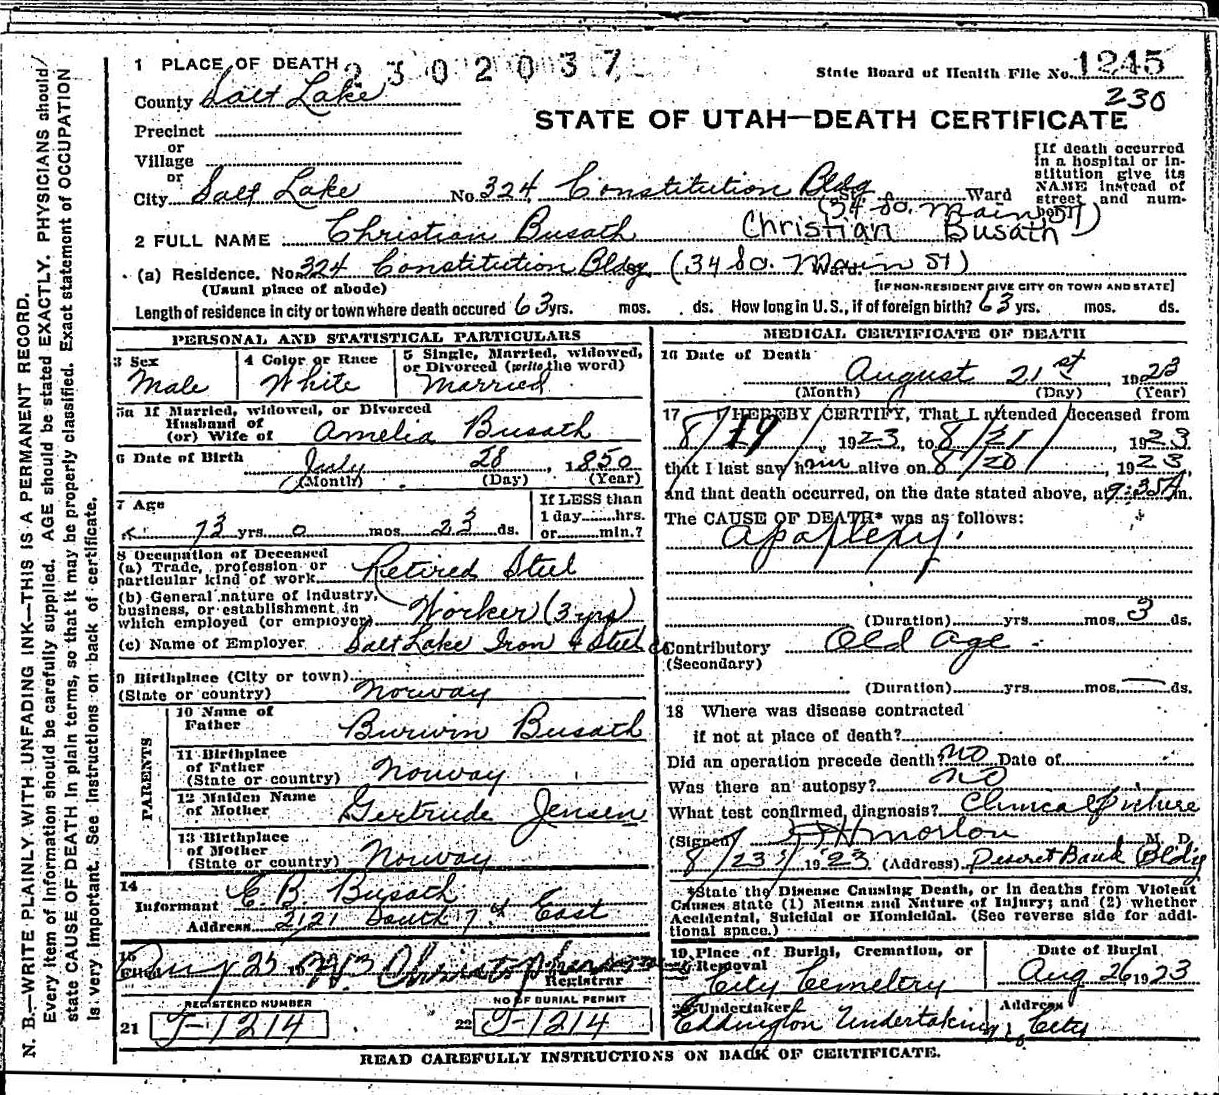 1 PLACE OF DEATH 2302037
State Board of Health File No. 1245
230
County Salt Lake
STATE OF UTAH—DEATH CERTIFICATE
Precinct
or
Village
or
City Salt Lake No. 324 Constitution Bldg Ward
(34 So. Main St)
[If death occurred
in a hospital or in-
stitution give its
NAME instead of
street and num-
ber]
2 FULL NAME Christian Busath Christian Busath
(a) Residence. No. 324 Constitution Bldg (34 So. Main St)
(Usual place of abode) [IF NON-RESIDENT GIVE CITY OR TOWN AND STATE]
Length of residence in city or town where death occured 63 yrs. mos. ds. How long in U.S., if of foreign birth? 63 yrs. mos. ds.
PERSONAL AND STATISTICAL PARTICULARS
3 Sex
Male
4 Color or Race
White
5 Single, Married, widowed,
or Divorced (write the word)
Married
5a If Married, widowed, or Divorced
Husband of
(or) Wife of Amelia Busath
6 Date of Birth July 28, 1850
(Month) (Day) (Year)
7 Age
73 yrs 0 mos 23 ds.
If LESS than
1 day......hrs.
or......min.?
8 Occupation of Deceased
(a) Trade, profession or
particular kind of work Retired Steel
(b) General nature of Industry,
business, or establishment in
which employed (or employer) Worker (3 yrs)
(c) Name of Employer Salt Lake Iron & Steel Co
9 Birthplace (City or town)
(State or country) Norway
PARENTS
10 Name of
Father Burwin Busath
11 Birthplace
of Father
(State or country) Norway
12 Maiden Name
of Mother Gertrude Jensen
13 Birthplace
of Mother
(State or country) Norway
14
Informant C. B. Busath
Address 2121 South 7th East
15
Filed Aug 25 1923
Registrar
REGISTERED NUMBER
21 J-1214
NO OF BURIAL PERMIT
22 J-1214
MEDICAL CERTIFICATE OF DEATH
16 Date of Death
August 21st, 1923
(Month) (Day) (Year)
17 I HEREBY CERTIFY, That I attended deceased from
8/19/, 1923, to 8/21/, 1923
that I last saw him alive on 8/20/, 1923,
and that death occurred, on the date stated above, at 9:35 A m.
The CAUSE OF DEATH* was as follows:
Apoplexy.
(Duration) yrs. mos. 3 ds.
Contributory Old Age
(Secondary)
(Duration) yrs. mos. — ds.
18 Where was disease contracted
if not at place of death?
Did an operation precede death? no Date of
Was there an autopsy? no
What test confirmed diagnosis? Clinical picture
(Signed) Morton M. D.
8/23/, 1923 (Address) Deseret Bank Bldg
*State the Disease Causing Death, or in deaths from Violent
Causes state (1) Means and Nature of Injury; and (2) whether
Accidental, Suicidal or Homicidal. (See reverse side for addi-
tional space.)
19 Place of Burial, Cremation, or
Removal
City Cemetery
Date of Burial
Aug 26 1923
20 Undertaker
Eddington Undertaking Co
Address
City
READ CAREFULLY INSTRUCTIONS ON BACK OF CERTIFICATE.
N. B.—WRITE PLAINLY WITH UNFADING INK—THIS IS A PERMANENT RECORD.
Every item of information should be carefully supplied. AGE should be stated EXACTLY. PHYSICIANS should
state CAUSE OF DEATH in plain terms, so that it may be properly classified. Exact statement of OCCUPATION
is very important. See Instructions on back of certificate.